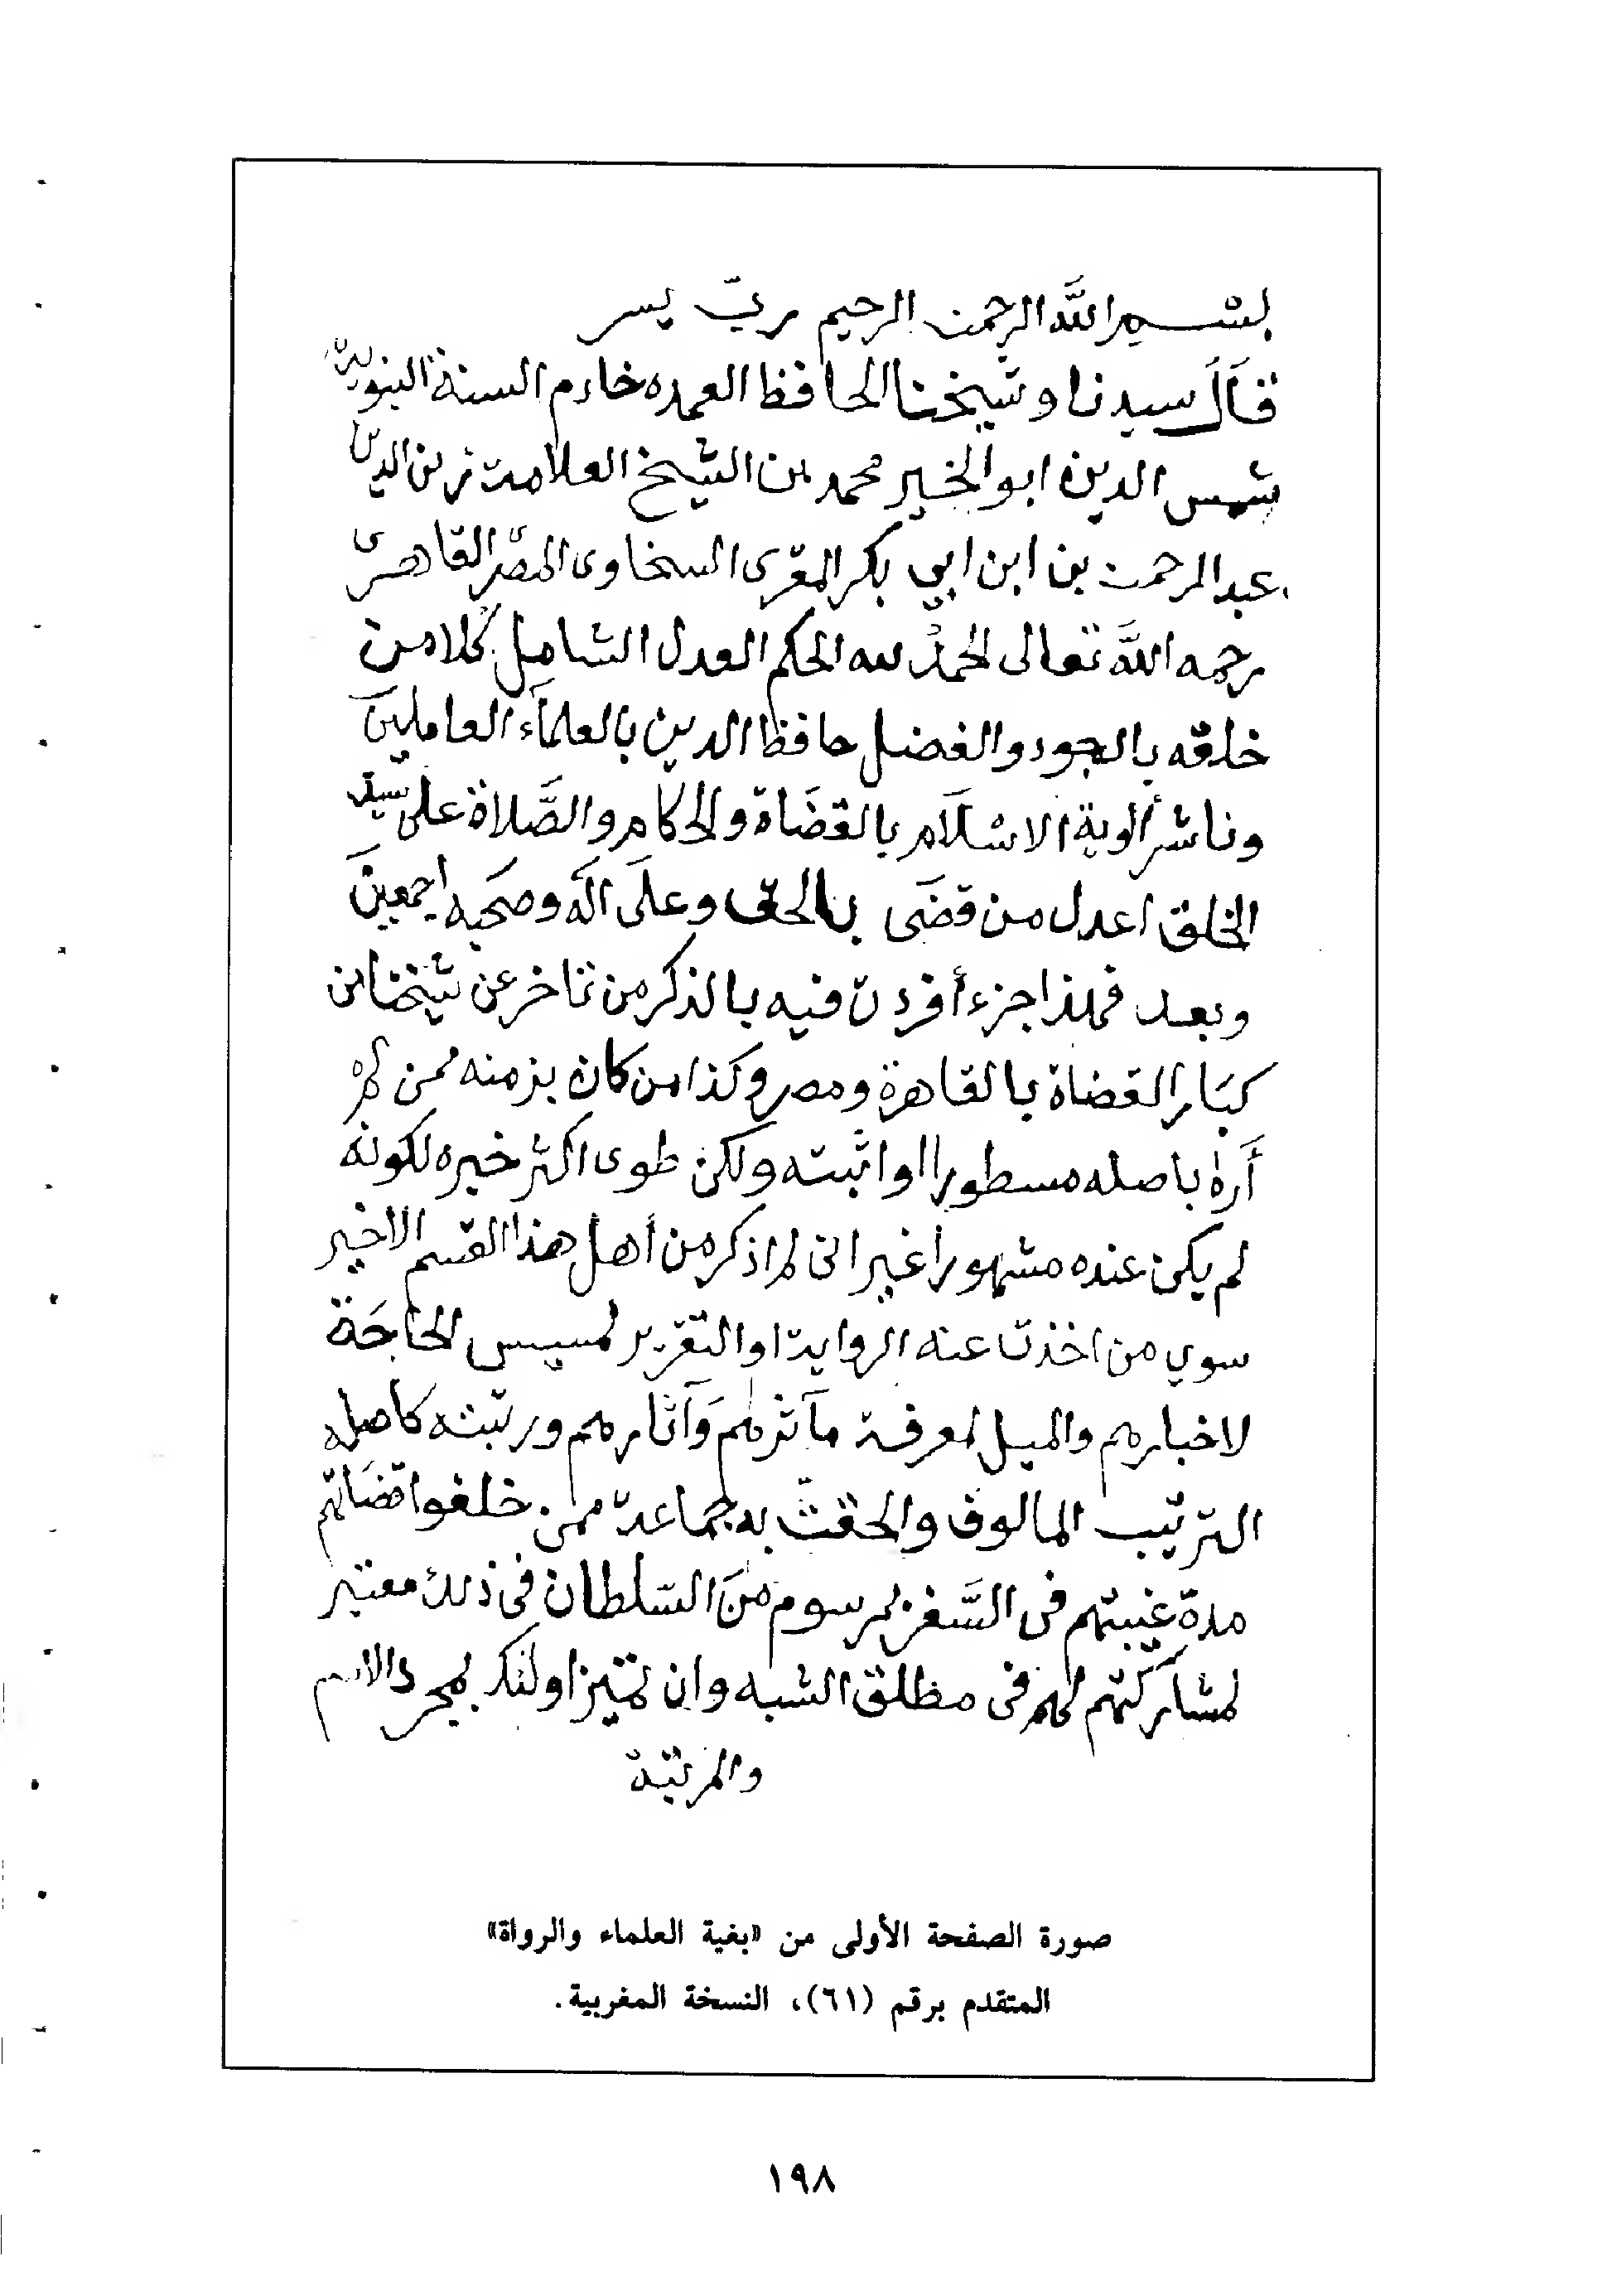 بسم الله الرحمن الرحيم رب يسر
قال سيدنا وشيخنا الحافظ العمده خادم السنة النبوية
شمس الدين ابو الخير محمد بن الشيخ العلامة زين الدين
عبد الرحمن بن ابن ابي بكر المقرى السخاوى المصرى القاهرى
رحمه الله تعالى الحمد لله الحكم العدل الشامل كلا من
خلقه بالجود والفضل حافظ الدين بالعلماء العاملين
وناشر ألوية الاسلام بالقضاة والحكام والصلاة على سيد
الخلق اعدل من قضى بالحق وعلى آله وصحبه اجمعين
وبعد فهذا جزء أفردت فيه بالذكر من تأخر عن شيخنا من
كبار القضاة بالقاهرة ومصر وكذا من كان بزمنه ممن لم
أره باصله مسطورا او اثبته ولكن طوى اكثر خبره لكونه
لم يكن عنده مشهورا غير انى لم اذكر من أهل هذا القسم الاخير
سوي من اخذت عنه الرواية او التقرير لمسيس الحاجة
لاخبارهم والميل لمعرفة مآثرهم وآثارهم ورتبته كاصله
الترتيب المالوف والحقت به جماعة ممن خلفوا قضاتهم
مدة غيبتهم فى السفر بمرسوم من السلطان فى ذلك معتبر
لمشاركتهم لهم فى مطلق الشبه وان تميز اولئك بمجرد الاسم
والمرتبة
صورة الصفحة الأولى من «بغية العلماء والرواة»
المتقدم برقم (٦١)، النسخة المغربية.
١٩٨